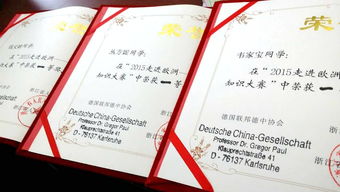 荣
同学:
在“2015走进欧洲
知识大赛”中荣获一
德国联邦德中协会
荣
同学:
在“2015走进欧洲
知识大赛”中荣获一等
德国联邦德中协会
Deutsche China-Gesellschaft
Professor Dr. Gregor Paul
Klauprechtstraße 41
D - 76137 Karlsruhe
荣
韦家宝同学:
在“2015走进欧洲
知识大赛”中荣获一
德国联邦德中协会
Deutsche China-Gesellschaft
Professor Dr. Gregor Paul
Klauprechtstraße 41
D - 76137 Karlsruhe